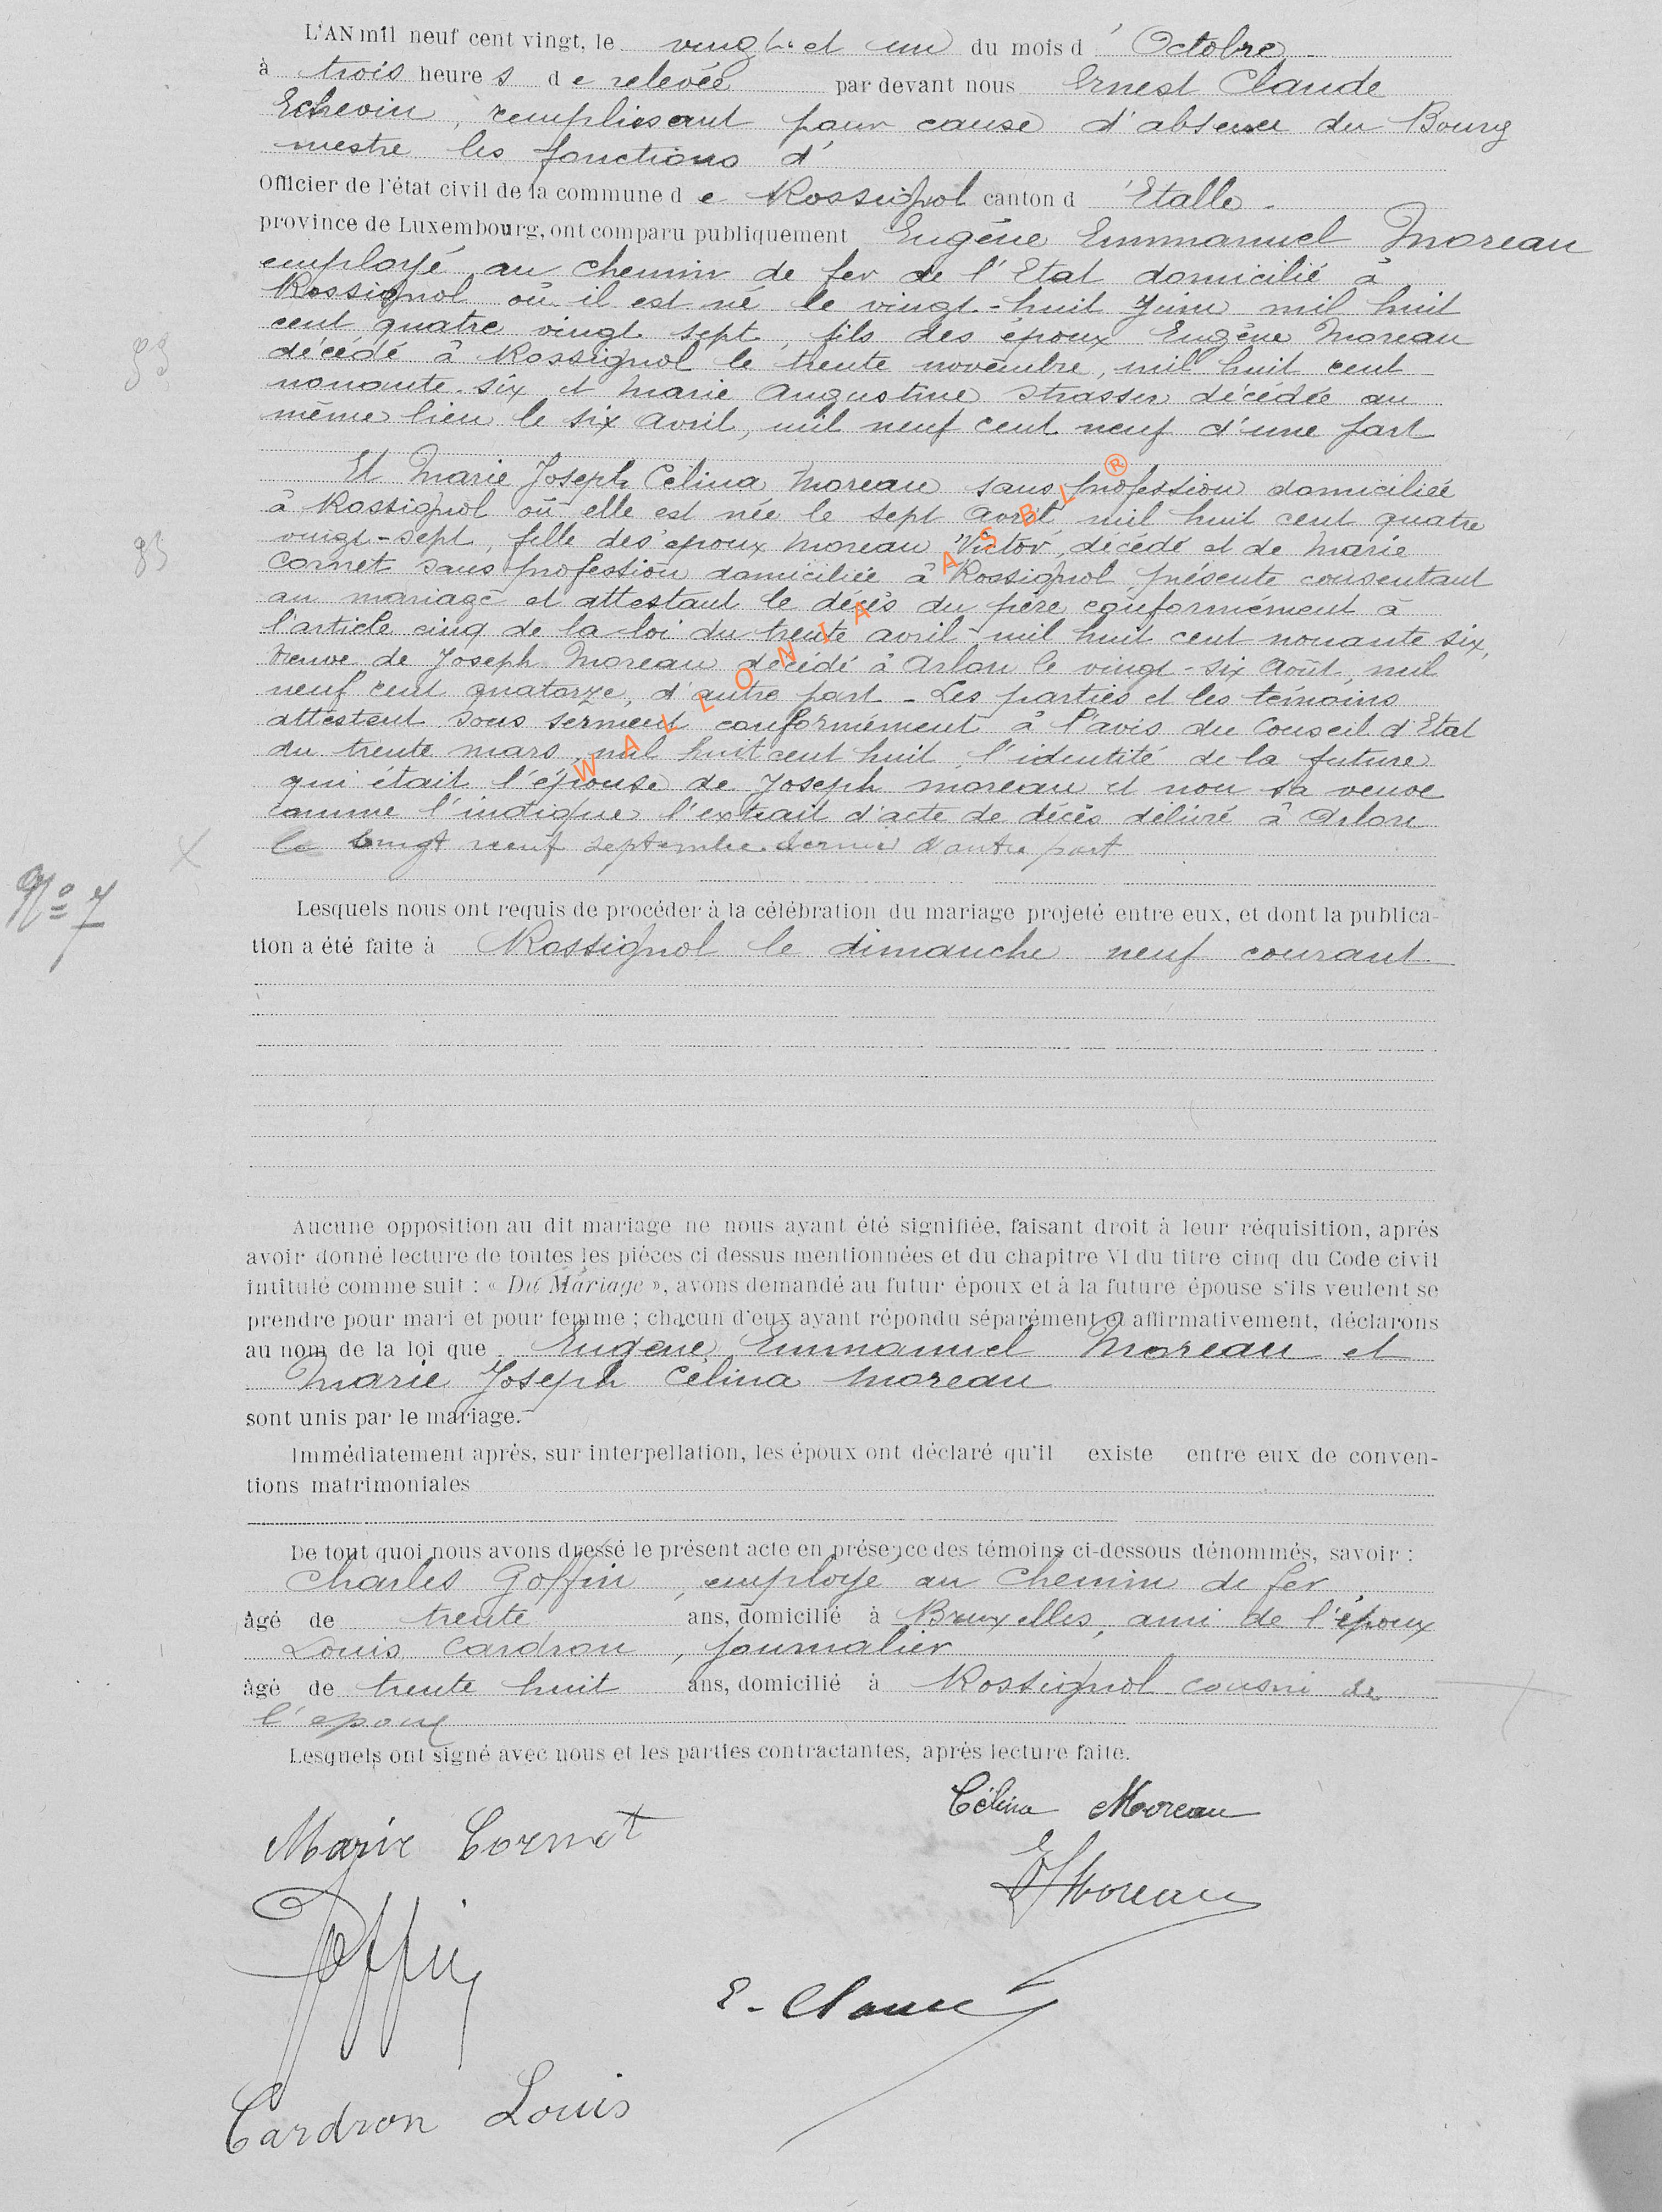 L'AN mil neuf cent vingt, le vingt et un du mois d' Octobre
à trois heures de relevée par devant nous Ernest Claude
Echevin, remplissant pour cause d'absence du Bourg
mestre les fonctions d'
Officier de l'état civil de la commune de Rossignol canton d'Etalle
province de Luxembourg, ont comparu publiquement Eugène Emmanuel Moreau
employé au chemin de fer de l'Etat domicilié à
Rossignol où il est né le vingt-huit Juin mil huit
cent quatre vingt sept, fils des époux Eugène Moreau
décédé à Rossignol le trente novembre, mil huit cent
nonante-six et Marie Augustine Strasser décédée au
même lieu le six Avril, mil neuf cent neuf d'une part
Et Marie Joseph Célina Moreau sans profession domiciliée
à Rossignol où elle est née le sept Avril mil huit cent quatre
vingt-sept, fille des époux Moreau Victor, décédé et de Marie
Cornet sans profession domiciliée à Rossignol présente consentant
au mariage et attestant le décès du père conformément à
l'article cinq de la loi du trente avril mil huit cent nonante six,
veuve de Joseph Moreau décédé à Arlon le vingt-six Août, mil
neuf cent quatorze, d'autre part - Les parties et les témoins
attestent sous serment conformément à l'avis du Conseil d'Etat
du trente mars, mil huit cent huit, l'identité de la future
qui était l'épouse de Joseph Moreau et non sa veuve
comme l'indique l'extrait d'acte de décès délivré à Arlon
le vingt neuf septembre dernier d'autre part
WALLONIA ASBL ®
N° 7
Lesquels nous ont requis de procéder à la célébration du mariage projeté entre eux, et dont la publica-
tion a été faite à Rossignol le dimanche neuf courant
Aucune opposition au dit mariage ne nous ayant été signifiée, faisant droit à leur réquisition, après
avoir donné lecture de toutes les pièces ci dessus mentionnées et du chapitre VI du titre cinq du Code civil
intitulé comme suit : « Du Mariage », avons demandé au futur époux et à la future épouse s'ils veulent se
prendre pour mari et pour femme ; chacun d'eux ayant répondu séparément et affirmativement, déclarons
au nom de la loi que Eugène Emmanuel Moreau et
Marie Joseph Célina Moreau
sont unis par le mariage.
Immédiatement après, sur interpellation, les époux ont déclaré qu'il existe entre eux de conven-
tions matrimoniales
De tout quoi nous avons dressé le présent acte en présence des témoins ci-dessous dénommés, savoir :
Charles Goffin, employé au Chemin de fer
âgé de trente ans, domicilié à Bruxelles, ami de l'époux
Louis Cardron, journalier
âgé de trente huit ans, domicilié à Rossignol cousin de
l'époux
Lesquels ont signé avec nous et les parties contractantes, après lecture faite.
Célina Moreau
Marie Cornet
E Moreau
Goffin
E. Claude
Cardron Louis